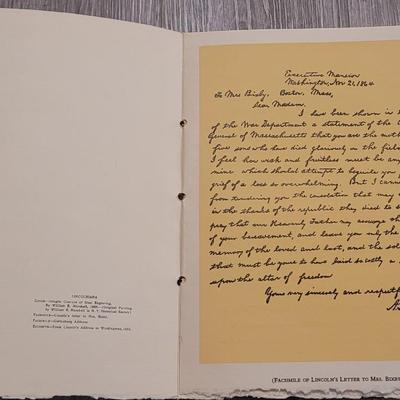 LINCOLNIANA
By William E. Marshall,
by William E. Marshall in N. Y. Historical Society)
Facsimile—Lincoln's letter to Mrs. Bixby.
Facsimile—Gettysburg Address
Excerpts—From Lincoln's Address in Washington, 1865.
Executive Mansion
Washington, Nov 21, 1864
To Mrs Bixby, Boston, Mass,
Dear Madam,
I have been shown in
of the War Department a statement of the
General of Massachusetts that you are the
five sons who have died gloriously on the
I feel how weak and fruitless must be any
mine which should attempt to beguile you
grief of a loss so overwhelming. But I cannot
from tendering you the consolation that may
in the thanks of the republic they died to
pray that our Heavenly Father may assuage
of your bereavement, and leave you only the
memory of the loved and lost, and the
that must be yours to have laid so costly a
upon the altar of freedom
Yours very sincerely and
(FACSIMILE OF LINCOLN'S LETTER TO MRS.